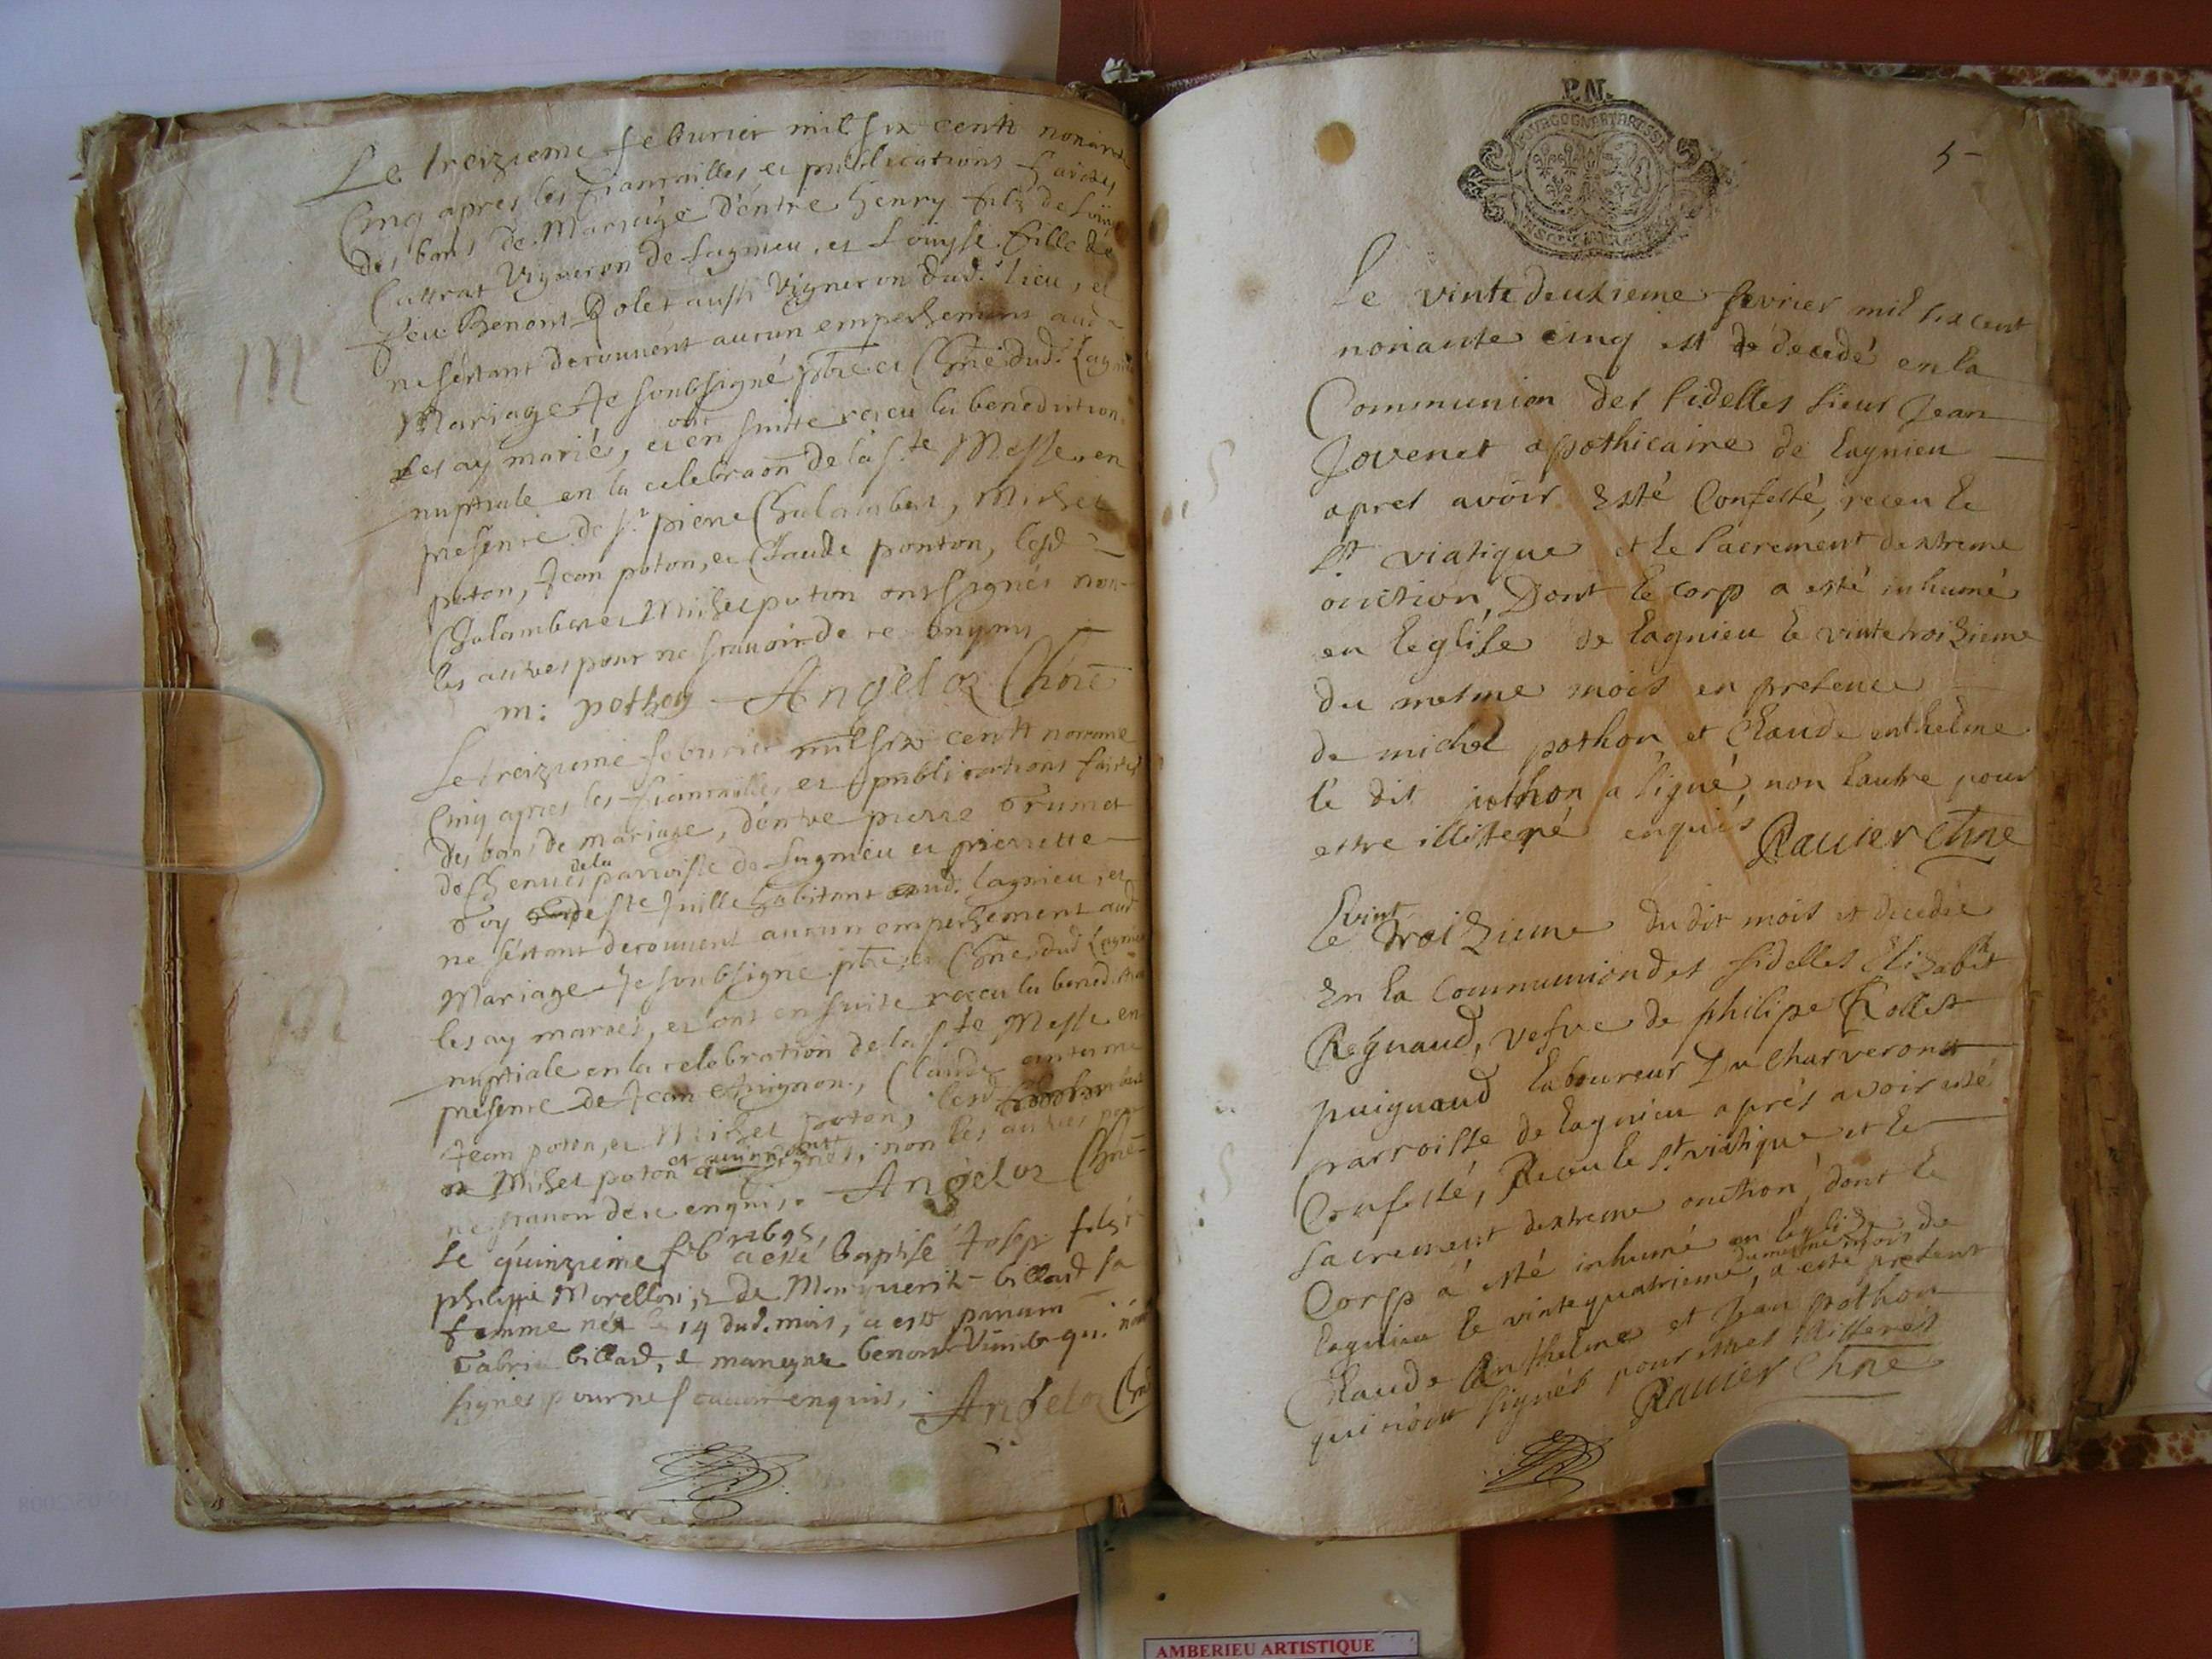 Le treizieme feburier mil six centz nonante
Cinq apres les fiancailles et publications faictes
des bans de Mariage d'entre henry filz de Louys
Cattrat Vigneron de Lagnieu, et Louyse fille de
feu Benoist Rolet aussi Vigneron dud. lieu, et
ne sestant decouvert aucun empeschement aud
Mariage Je soubsigné ptre et Chne dud. Lagnieu
les ay mariés, et ont en suitte receu la benediction
nuptiale en la celebraon de la s.te Messe, en
presence de s.r pierre Chalambert, Michel
poton, Jean poton, et Claude ponton, lesd
Chalambert et Michel poton ont signés non
les autres pour ne scauoir de ce enquis
m: pothon Angeloz Chne
Le treizieme feburier mil six centz nonante
Cinq apres les fiancailles et publications faictes
des bans de mariage, d'entre pierre Trumet
de Chenues de la parroisse de Lagnieu et pierrette
Toy de ste Juille habitant aud. lagnieu, et
ne sestant decouuert aucun empeschement aud
Mariage Je soubsigné ptre, et Chne dud Lagnieu
les ay mariés, et ont en suite receu la benediction
nuptiale en la celebration de la s.te Messe en
presence de Jean Claude
Jean poton, et Michel poton, lesd
Michel poton et ont signés, non les autres pour
ne scauoir de ce enquis. Angeloz Chne
Le quinzieme feb 1695, a esté baptisé Josep fils à
philippe Morellon, & de Marguerite billard sa
femme né le 14 dud. mois, a esté parrain
billard, & mareyne benoite qui n'ont
signés pour ne scauoir enquis. Angeloz Chne
P.N.
5
Le vinte deuxieme fevrier mil six cent
nonante cinq est decedé en la
Communion des fidelles sieur Jean
Jovenet apothicaire de lagnieu
apres avoir Esté Confessé, receu le
st viatique et le sacrement dextreme
onction, Dont le corp a esté inhumé
en leglise de lagnieu le vintetroizieme
du mesme mois en presence
de michel pothon et Claude enthelme
le dit pothon a signé, non lautre pour
estre illiteré enquis Rauier Chne
Le vint troizieme du dit mois est decedée
En la Communion des fidelles Elizabet
Reguaud, vefve de philipe Rollet
puignaud laboureur Du Charveront
parroisse de lagnieu aprés avoir esté
Confessé, Receu le st viatique et le
sacrement dextreme onction, dont le
Corp a esté inhumé en léglise de
lagnieu le vintequatrieme du mesme mois, a esté present
Claude Anthelme et Jean pothon
qui n'ont signés pour estres illiterés
Rauier Chne
AMBERIEU ARTISTIQUE